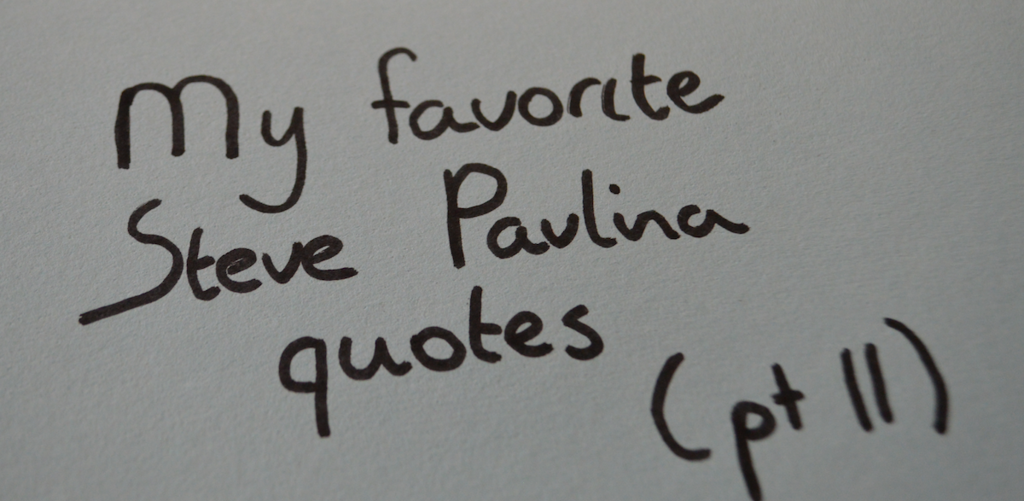 My favorite
Steve Pavlina
quotes
(pt II)